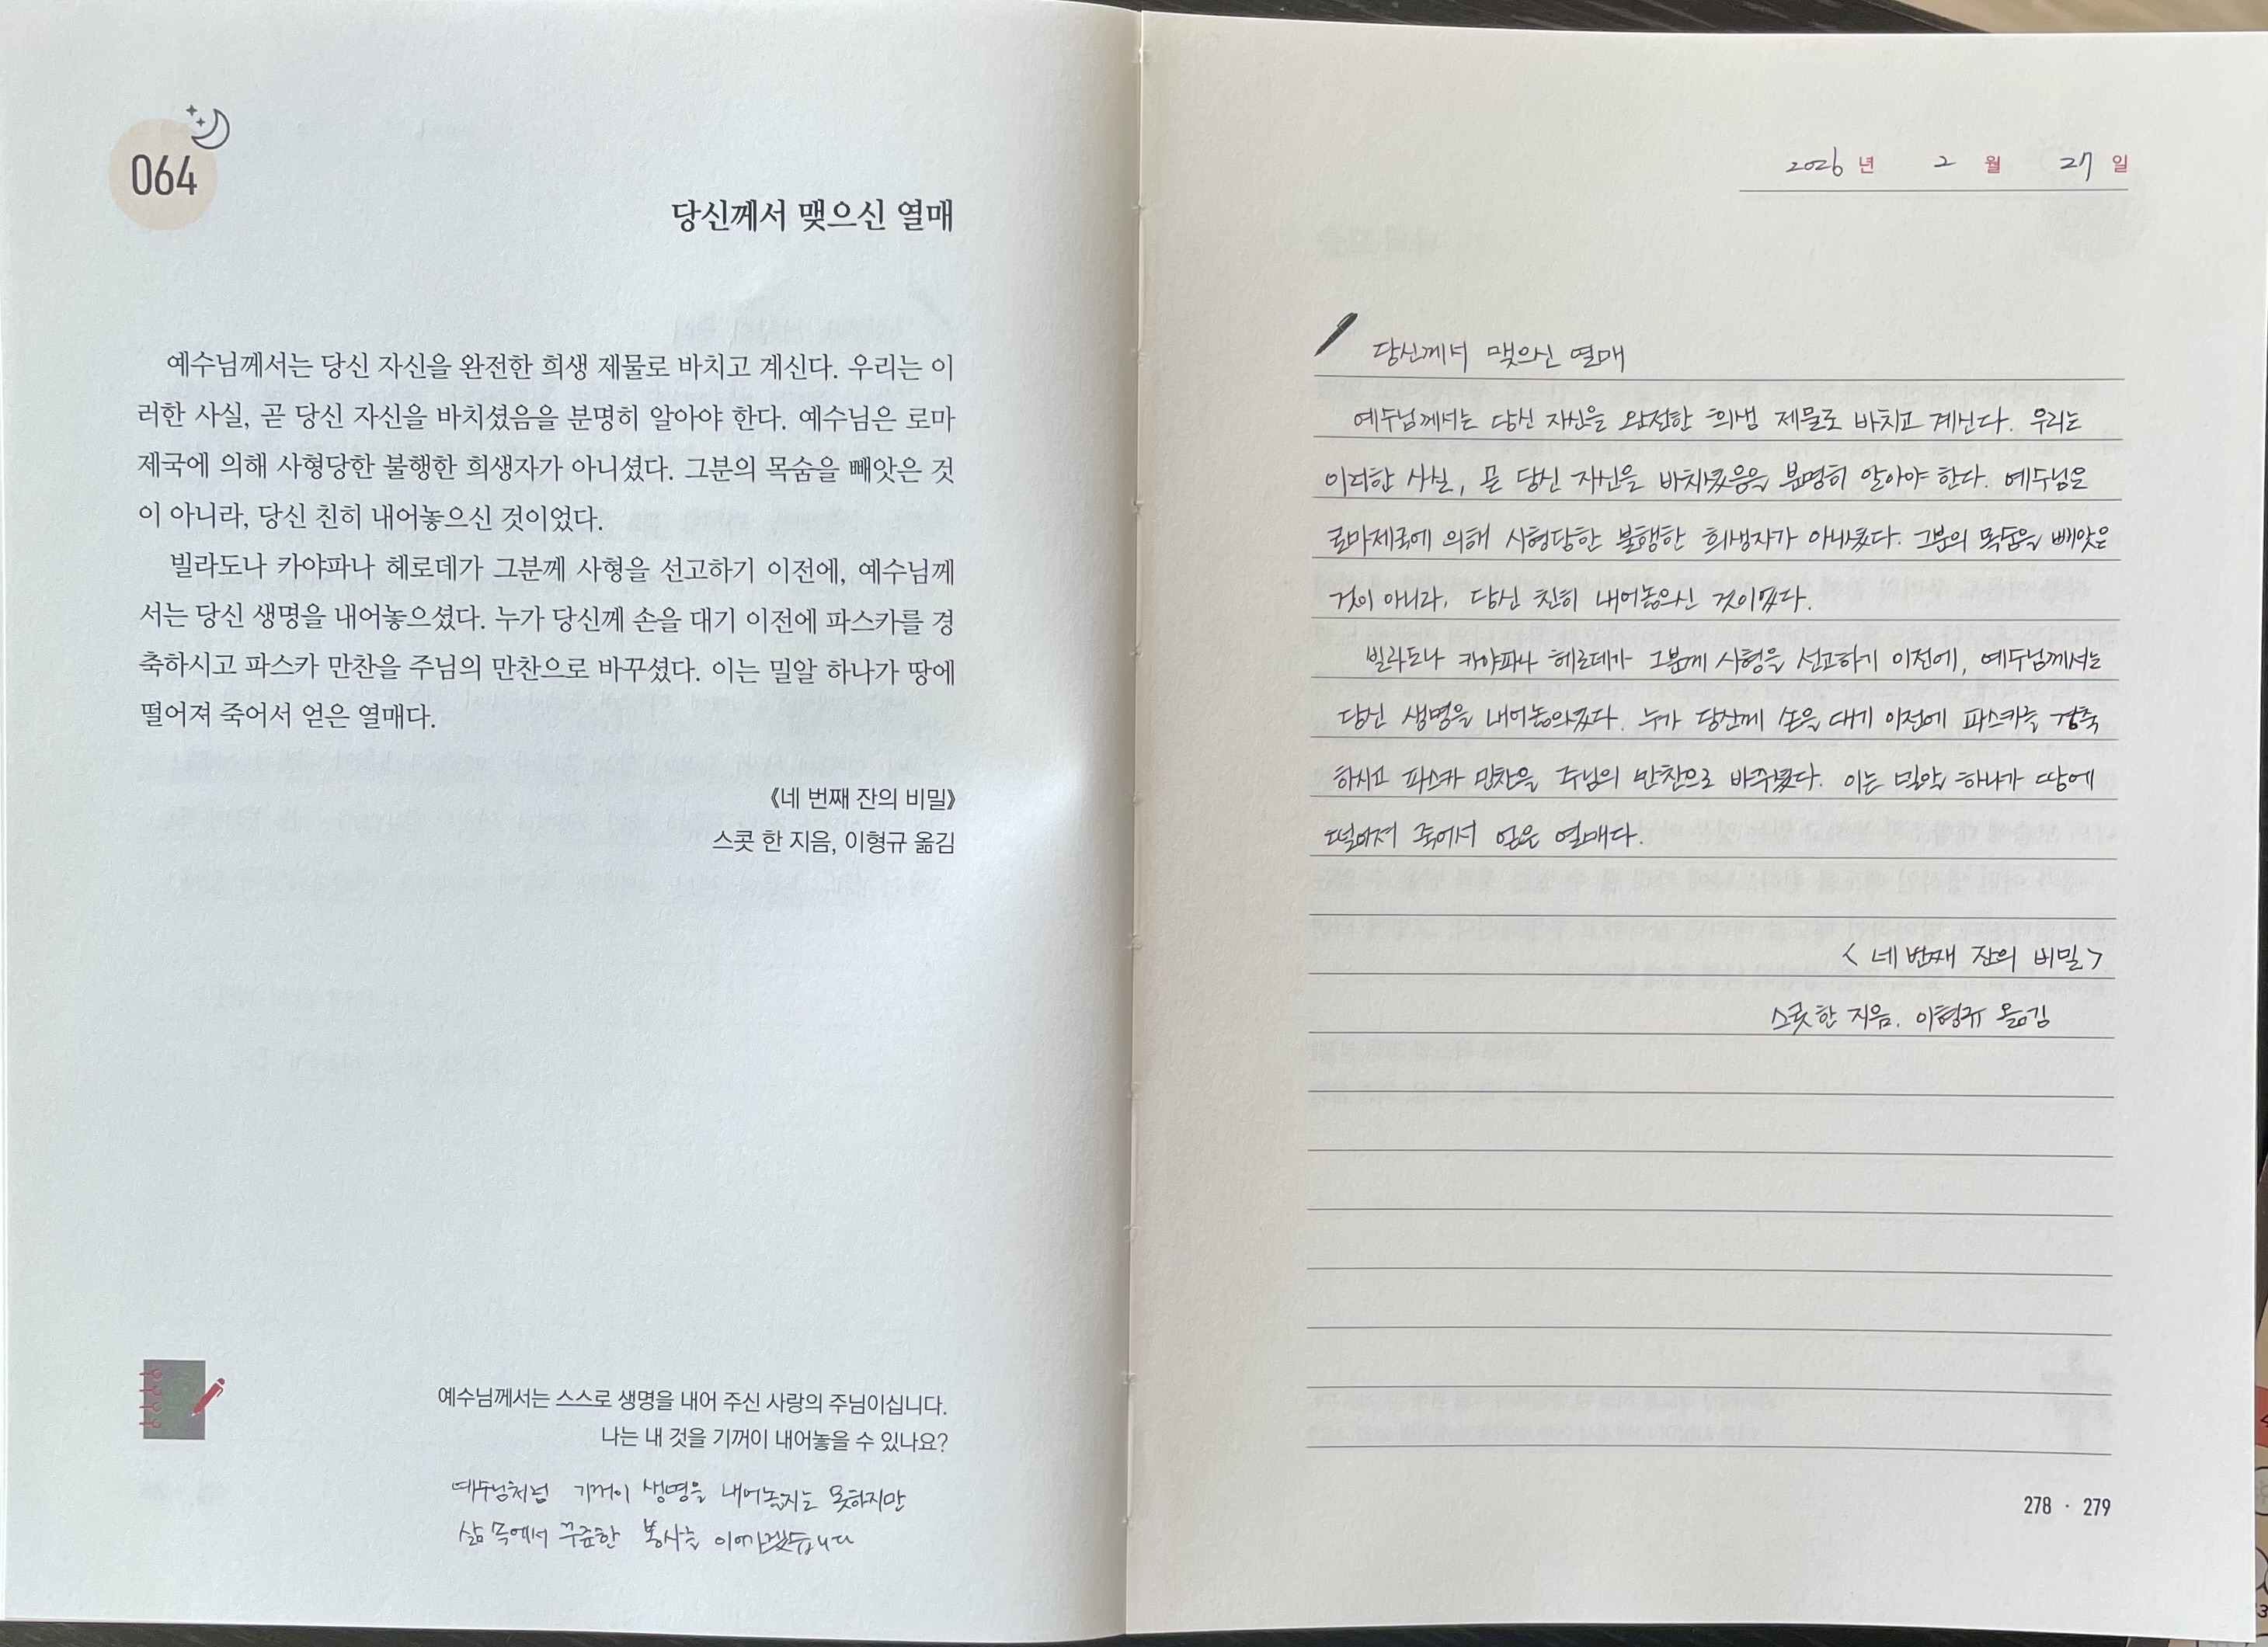 064
당신께서 맺으신 열매
예수님께서는 당신 자신을 완전한 희생 제물로 바치고 계신다. 우리는 이
러한 사실, 곧 당신 자신을 바치셨음을 분명히 알아야 한다. 예수님은 로마
제국에 의해 사형당한 불행한 희생자가 아니셨다. 그분의 목숨을 빼앗은 것
이 아니라, 당신 친히 내어놓으신 것이었다.
빌라도나 카야파나 헤로데가 그분께 사형을 선고하기 이전에, 예수님께
서는 당신 생명을 내어놓으셨다. 누가 당신께 손을 대기 이전에 파스카를 경
축하시고 파스카 만찬을 주님의 만찬으로 바꾸셨다. 이는 밀알 하나가 땅에
떨어져 죽어서 얻은 열매다.
《네 번째 잔의 비밀》
스콧 한 지음, 이형규 옮김
예수님께서는 스스로 생명을 내어 주신 사랑의 주님이십니다.
나는 내 것을 기꺼이 내어놓을 수 있나요?
예수님처럼 기꺼이 생명을 내어놓지는 못하지만
삶 속에서 꾸준한 봉사를 이어가겠습니다
2026 년 2 월 27 일
당신께서 맺으신 열매
예수님께서는 당신 자신을 완전한 희생 제물로 바치고 계신다. 우리는
이러한 사실, 곧 당신 자신을 바치셨음을 분명히 알아야 한다. 예수님은
로마제국에 의해 사형당한 불행한 희생자가 아니셨다. 그분의 목숨을 빼앗은
것이 아니라, 당신 친히 내어놓으신 것이었다.
빌라도나 카야파나 헤로데가 그분께 사형을 선고하기 이전에, 예수님께서는
당신 생명을 내어놓으셨다. 누가 당신께 손을 대기 이전에 파스카를 경축
하시고 파스카 만찬을 주님의 만찬으로 바꾸셨다. 이는 밀알 하나가 땅에
떨어져 죽어서 얻은 열매다.
<네 번째 잔의 비밀>
스콧 한 지음, 이형규 옮김
278 · 279